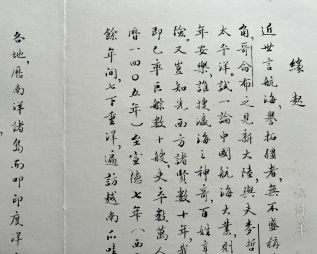 緣起
近世言航海譽拓疆者，無不盛稱
角，哥侖布之見新大陸，與夫麥哲
太平洋。試一論中國航海大業，則
年安樂，誰捜瀛海之神奇，百姓
險。又豈知先西方諸賢數十年，我
即已率巨艅數十艘，史卒數萬人
曆一四〇五年）至宣德七年（西
餘年間，七下重洋，遍訪越南
各地，曆南洋諸島而叩印度洋